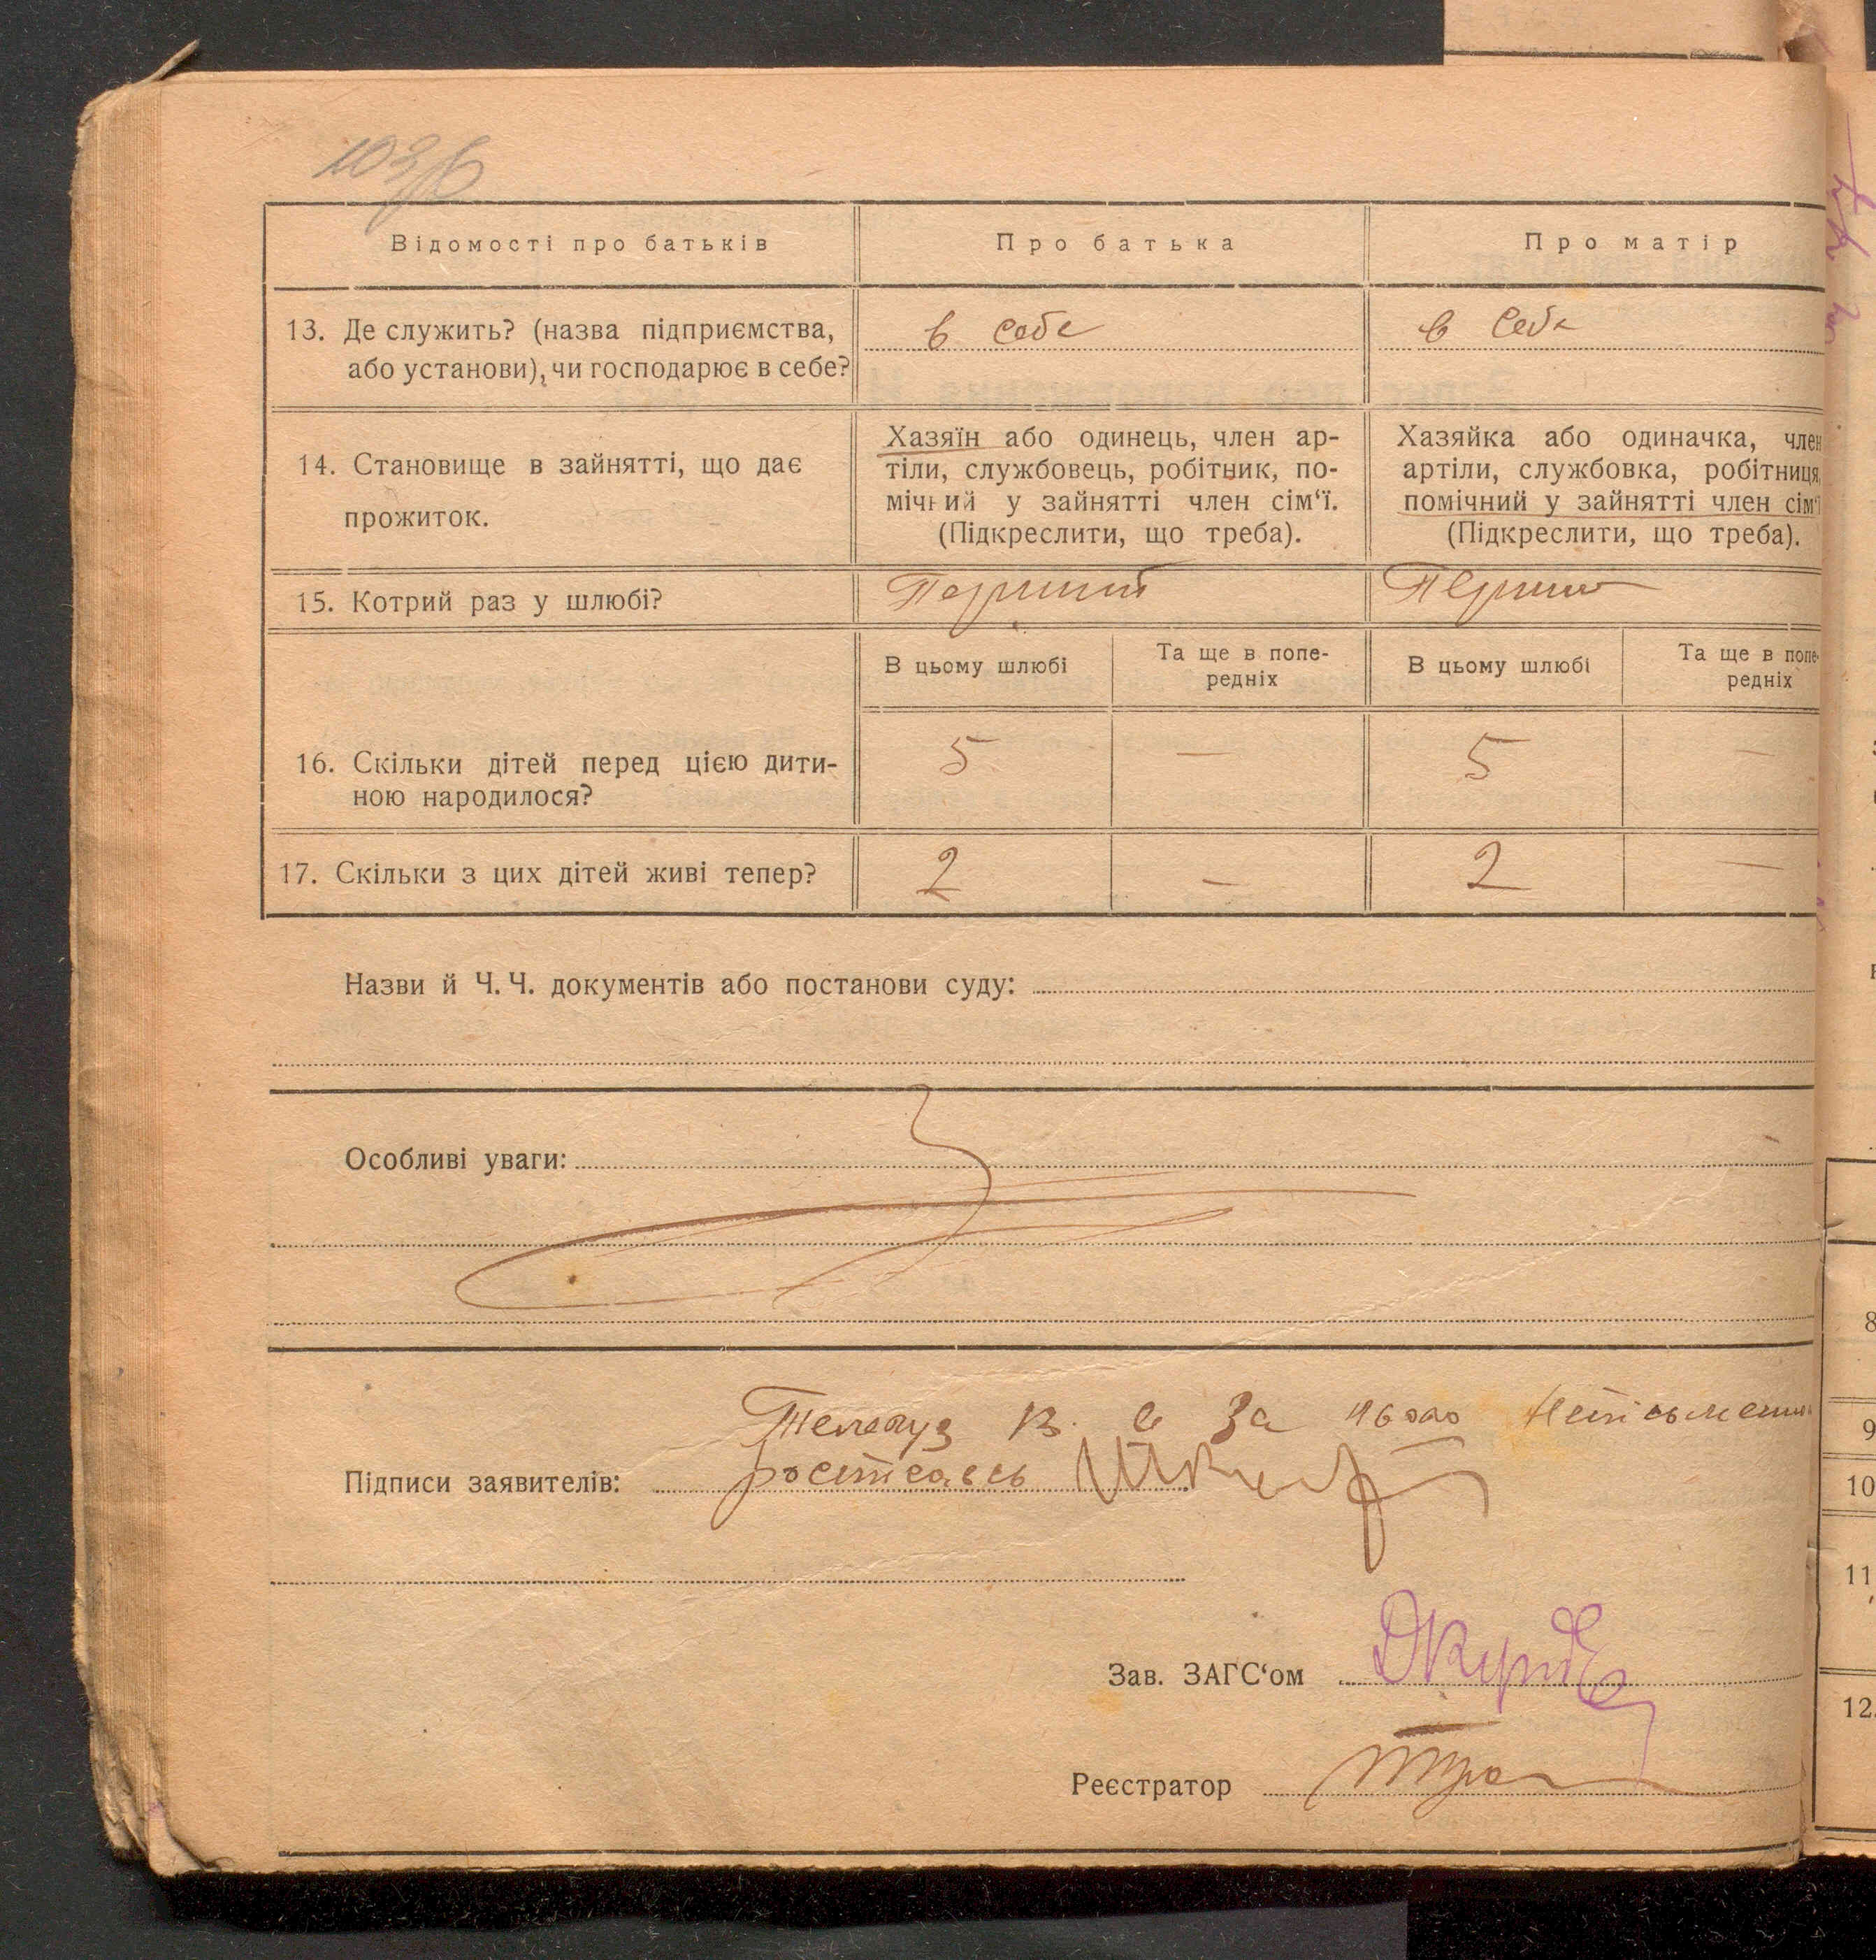 103
Відомості про батьків
Про батька
Про матір
13. Де служить? (назва підприємства,
або установи), чи господарює в себе?
в себе
в себе
14. Становище в зайнятті, що дає
прожиток.
Хазяїн або одинець, член ар-
тіли, службовець, робітник, по-
мічний у зайнятті член сім‘ї.
(Підкреслити, що треба).
Хазяйка або одиначка, член
артіли, службовка, робітниця,
помічний у зайнятті член сім‘ї
(Підкреслити, що треба).
15. Котрий раз у шлюбі?
Перший
Перший
В цьому шлюбі
Та ще в попе-
редніх
В цьому шлюбі
Та ще в попе-
редніх
16. Скільки дітей перед цією дити-
ною народилося?
5
—
5
—
17. Скільки з цих дітей живі тепер?
2
—
2
—
Назви й Ч. Ч. документів або постанови суду:
Особливі уваги:
За
Підписи заявителів:
Зав. ЗАГС‘ом
Реєстратор
8
9
10
11
12.